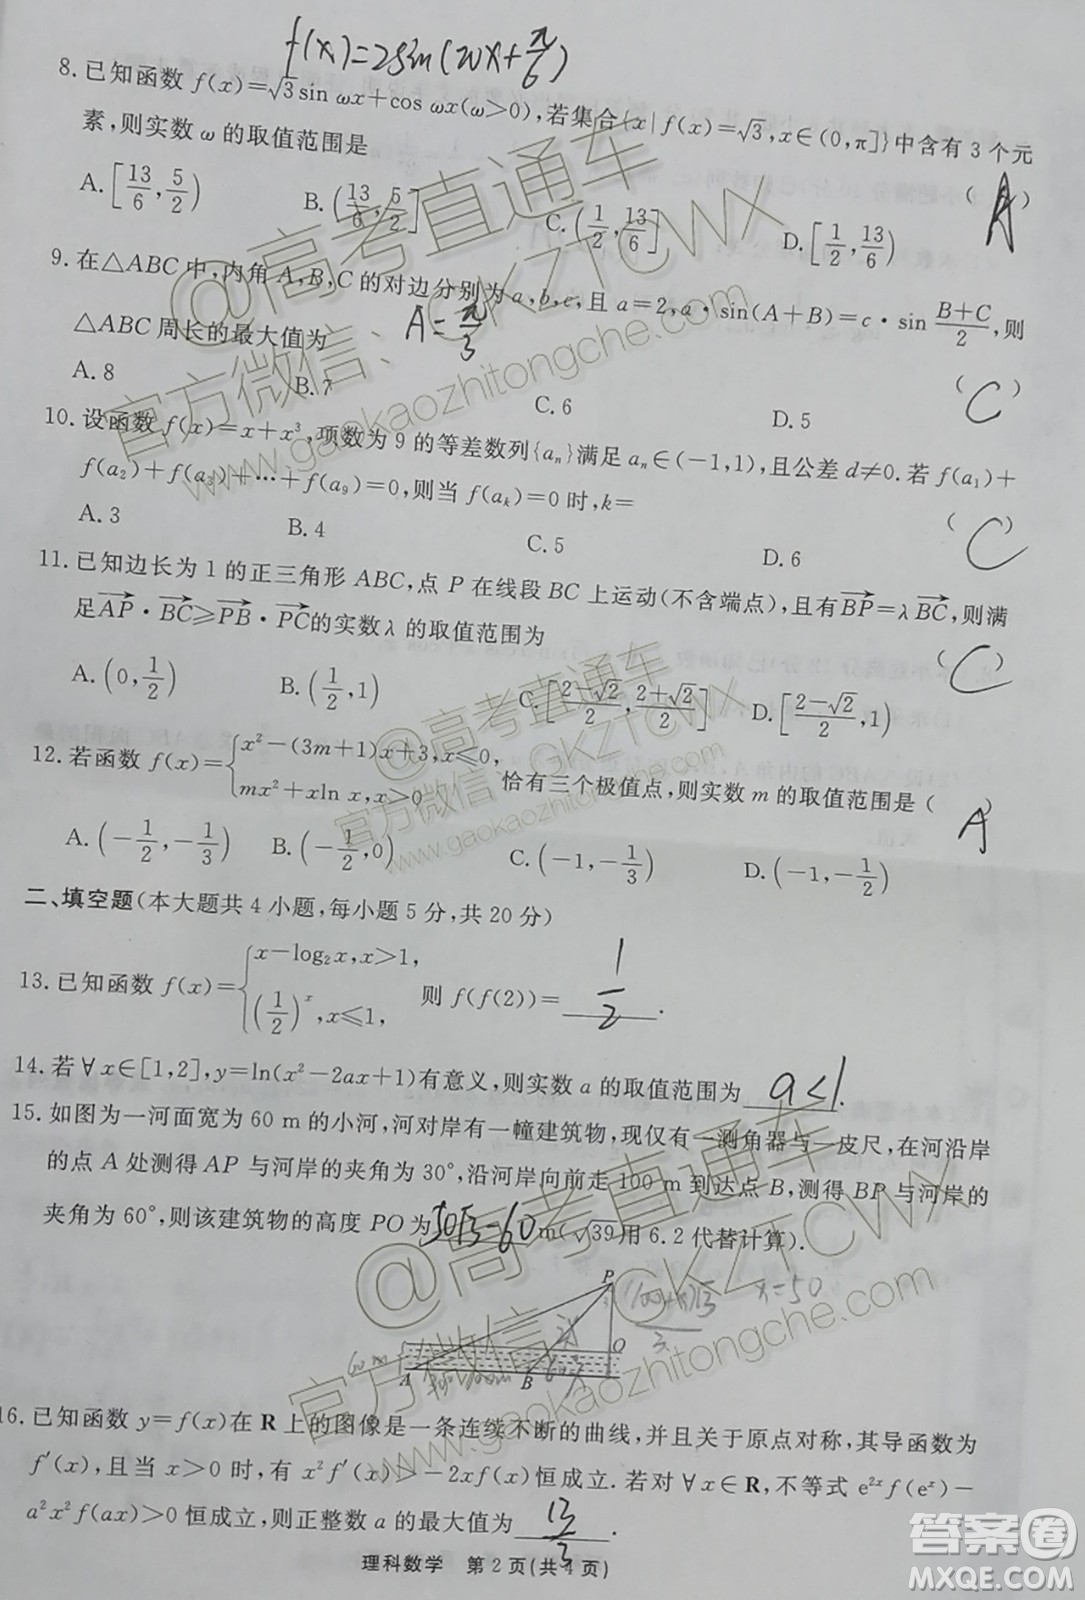 f(x)=2sin(wx+π/6)
8. 已知函数 f(x)=√3sin ωx+cos ωx(ω>0),若集合{x|f(x)=√3,x∈(0,π]}中含有 3 个元
素,则实数 ω 的取值范围是 ( A )
A.[13/6,5/2) B.(13/6,5/2] C.(1/2,13/6] D.[1/2,13/6)
9. 在△ABC 中,内角 A,B,C 的对边分别为 a,b,c,且 a=2,a·sin(A+B)=c·sin (B+C)/2,则
△ABC 周长的最大值为 A=π/3 ( C )
A. 8 B. 7 C. 6 D. 5
10. 设函数 f(x)=x+x³,项数为 9 的等差数列{aₙ}满足 aₙ∈(-1,1),且公差 d≠0.若 f(a₁)+
f(a₂)+f(a₃)+…+f(a₉)=0,则当 f(aₖ)=0 时,k= ( C )
A. 3 B. 4 C. 5 D. 6
11. 已知边长为 1 的正三角形 ABC,点 P 在线段 BC 上运动(不含端点),且有BP→=λBC→,则满
足AP→·BC→≥PB→·PC→的实数λ 的取值范围为 ( C )
A.(0,1/2) B.(1/2,1) C.[(2-√2)/2,(2+√2)/2] D.[(2-√2)/2,1)
12. 若函数 f(x)={x²-(3m+1)x+3,x≤0, mx²+xln x,x>0 恰有三个极值点,则实数 m 的取值范围是( A )
A.(-1/2,-1/3) B.(-1/2,0) C.(-1,-1/3) D.(-1,-1/2)
二、填空题(本大题共 4 小题,每小题 5 分,共 20 分)
13. 已知函数 f(x)={x-log₂x,x>1, (1/2)ˣ,x≤1, 则 f(f(2))= 1/2 .
14. 若∀x∈[1,2],y=ln(x²-2ax+1)有意义,则实数 a 的取值范围为 a<1 .
15. 如图为一河面宽为 60 m 的小河,河对岸有一幢建筑物,现仅有一测角器与一皮尺,在河沿岸
的点 A 处测得 AP 与河岸的夹角为 30°,沿河岸向前走 100 m 到达点 B,测得 BP 与河岸的
夹角为 60°,则该建筑物的高度 PO 为 50√3-60 m(√39用 6.2 代替计算).
P
x=50
O
60m
A B
16. 已知函数 y=f(x)在 R 上的图像是一条连续不断的曲线,并且关于原点对称,其导函数为
f′(x),且当 x>0 时,有 x²f′(x)>-2xf(x)恒成立.若对∀x∈R,不等式 e²ˣf(eˣ)-
a²x²f(ax)>0 恒成立,则正整数 a 的最大值为 13/3 .
理科数学 第 2 页(共 4 页)
@高考直通车
官方微信:GKZTCWX
www.gaokaozhitongche.com
@高考直通车
官方微信:GKZTCWX
www.gaokaozhitongche.com
@高考直通车
官方微信:GKZTCWX
www.gaokaozhitongche.com
答案圈
MXQE.COM